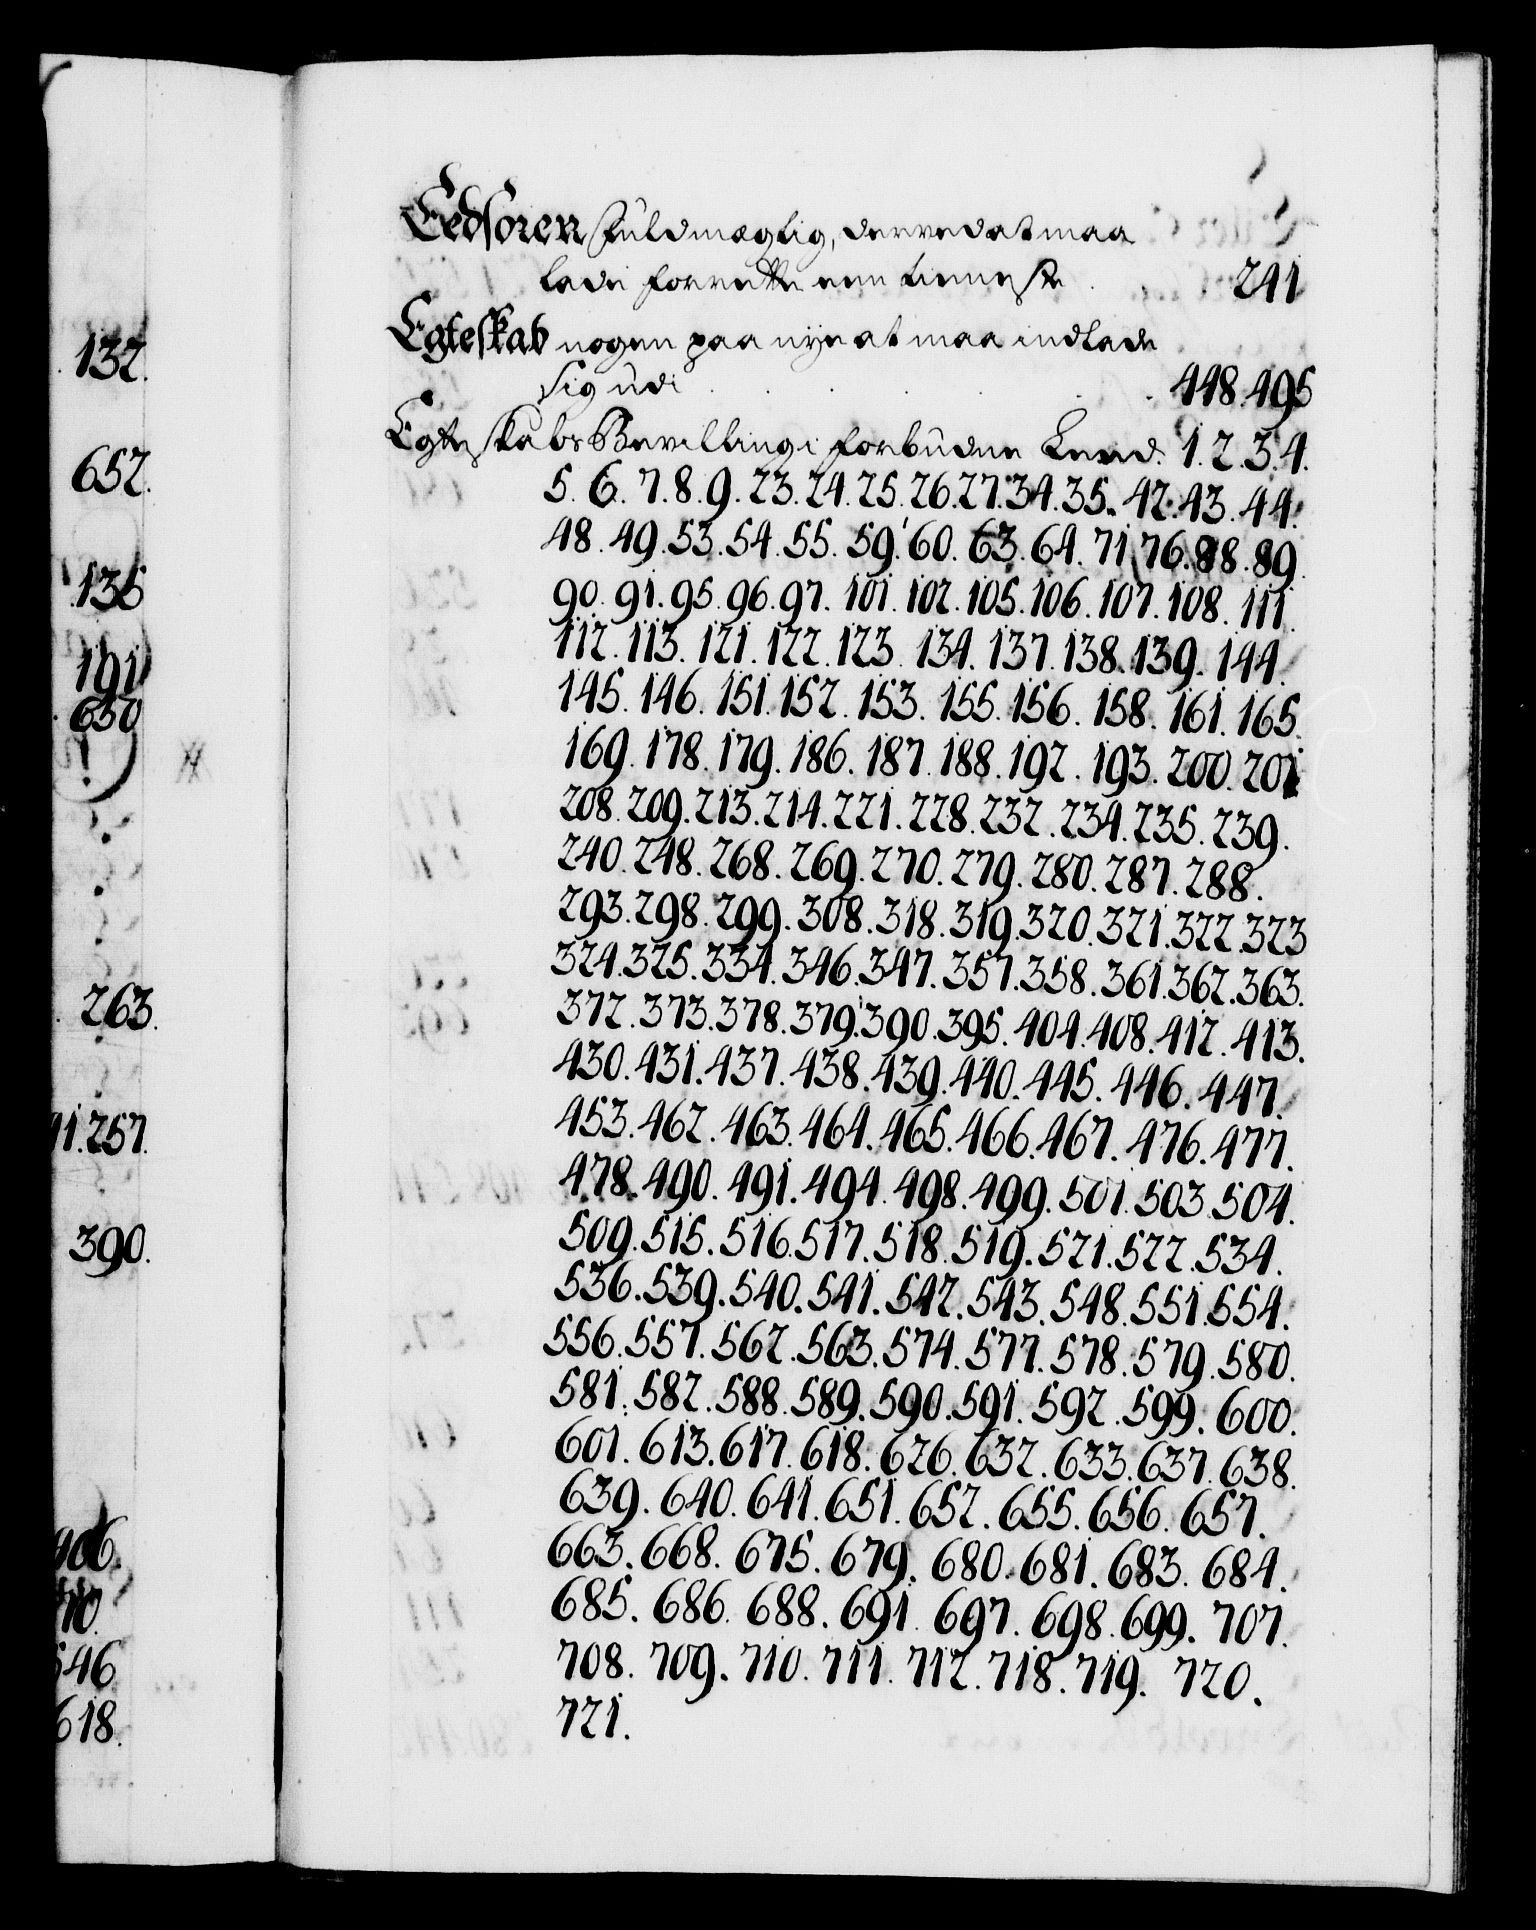 132.
652.
135
191
650
263.
11.257.
390.
406.
546
618.
Eedsoren fuldmægtig, derved at maa
lade forrette een tieneste 241
Egteskab nogen paa nye at maa indlade
sig udi . . . . 448.495
Egteskabs Bevilling i forbudne Leed. 1.2.3.4.
5.6.7.8.9.23.24.25.26.27.34.35.42.43.44.
48.49.53.54.55.59.60.63.64.71.76.88.89.
90.91.95.96.97.101.102.105.106.107.108.111.
112.113.121.122.123.134.137.138.139.144.
145.146.151.152.153.155.156.158.161.165.
169.178.179.186.187.188.192.193.200.201
208.209.213.214.221.228.232.234.235.239.
240.248.268.269.270.279.280.287.288.
293.298.299.308.318.319.320.321.322.323
324.325.334.346.347.357.358.361.362.363.
372.373.378.379.390.395.404.408.412.413.
430.431.437.438.439.440.445.446.447.
453.462.463.464.465.466.467.476.477.
478.490.491.494.498.499.501.503.504.
509.515.516.517.518.519.521.522.534.
536.539.540.541.542.543.548.551.554.
556.557.562.563.574.577.578.579.580.
581.582.588.589.590.591.592.599.600.
601.613.617.618.626.632.633.637.638.
639.640.641.651.652.655.656.657.
663.668.675.679.680.681.683.684.
685.686.688.691.697.698.699.707.
708.709.710.711.712.718.719.720.
721.